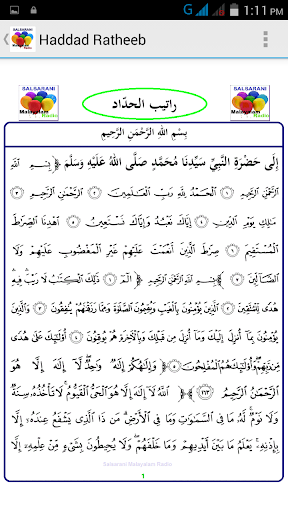 1:11 PM
Haddad Ratheeb
SALSARANI
Malayalam
Radio
راتيب الحدّاد
SALSARANI
Malayalam
Radio
بِسْمِ اللهِ الرَّحْمَنِ الرَّحِيمِ
إِلَى حَضْرَةِ النَّبِيِّ سَيِّدِنَا مُحَمَّدٍ صَلَّى اللهُ عَلَيْهِ وَسَلَّمَ ﴿ بِسْمِ اللَّهِ
الرَّحْمَنِ الرَّحِيمِ ۝١ الْحَمْدُ لِلَّهِ رَبِّ الْعَالَمِينَ ۝٢ الرَّحْمَنِ الرَّحِيمِ ۝٣
مَالِكِ يَوْمِ الدِّينِ ۝٤ إِيَّاكَ نَعْبُدُ وَإِيَّاكَ نَسْتَعِينُ ۝٥ اهْدِنَا الصِّرَاطَ
الْمُسْتَقِيمَ ۝٦ صِرَاطَ الَّذِينَ أَنْعَمْتَ عَلَيْهِمْ غَيْرِ الْمَغْضُوبِ عَلَيْهِمْ وَلَا
الضَّالِّينَ ۝٧ ﴾ بِسْمِ اللَّهِ الرَّحْمَنِ الرَّحِيمِ ﴿ الم ۝١ ذَلِكَ الْكِتَابُ لَا رَيْبَ فِيهِ
هُدًى لِلْمُتَّقِينَ ۝٢ الَّذِينَ يُؤْمِنُونَ بِالْغَيْبِ وَيُقِيمُونَ الصَّلَاةَ وَمِمَّا رَزَقْنَاهُمْ يُنْفِقُونَ ۝٣ وَالَّذِينَ
يُؤْمِنُونَ بِمَا أُنْزِلَ إِلَيْكَ وَمَا أُنْزِلَ مِنْ قَبْلِكَ وَبِالْآخِرَةِ هُمْ يُوقِنُونَ ۝٤ أُولَئِكَ عَلَى هُدًى
مِنْ رَبِّهِمْ وَأُولَئِكَ هُمُ الْمُفْلِحُونَ ۝٥ ﴾ ﴿ وَإِلَهُكُمْ إِلَهٌ وَاحِدٌ لَا إِلَهَ إِلَّا هُوَ
الرَّحْمَنُ الرَّحِيمُ ۝١٦٣ ﴾ ﴿ اللَّهُ لَا إِلَهَ إِلَّا هُوَ الْحَيُّ الْقَيُّومُ لَا تَأْخُذُهُ سِنَةٌ
وَلَا نَوْمٌ لَهُ مَا فِي السَّمَاوَاتِ وَمَا فِي الْأَرْضِ مَنْ ذَا الَّذِي يَشْفَعُ عِنْدَهُ إِلَّا
بِإِذْنِهِ يَعْلَمُ مَا بَيْنَ أَيْدِيهِمْ وَمَا خَلْفَهُمْ وَلَا يُحِيطُونَ بِشَيْءٍ مِنْ عِلْمِهِ إِلَّا
Salsarani Malayalam Radio
1